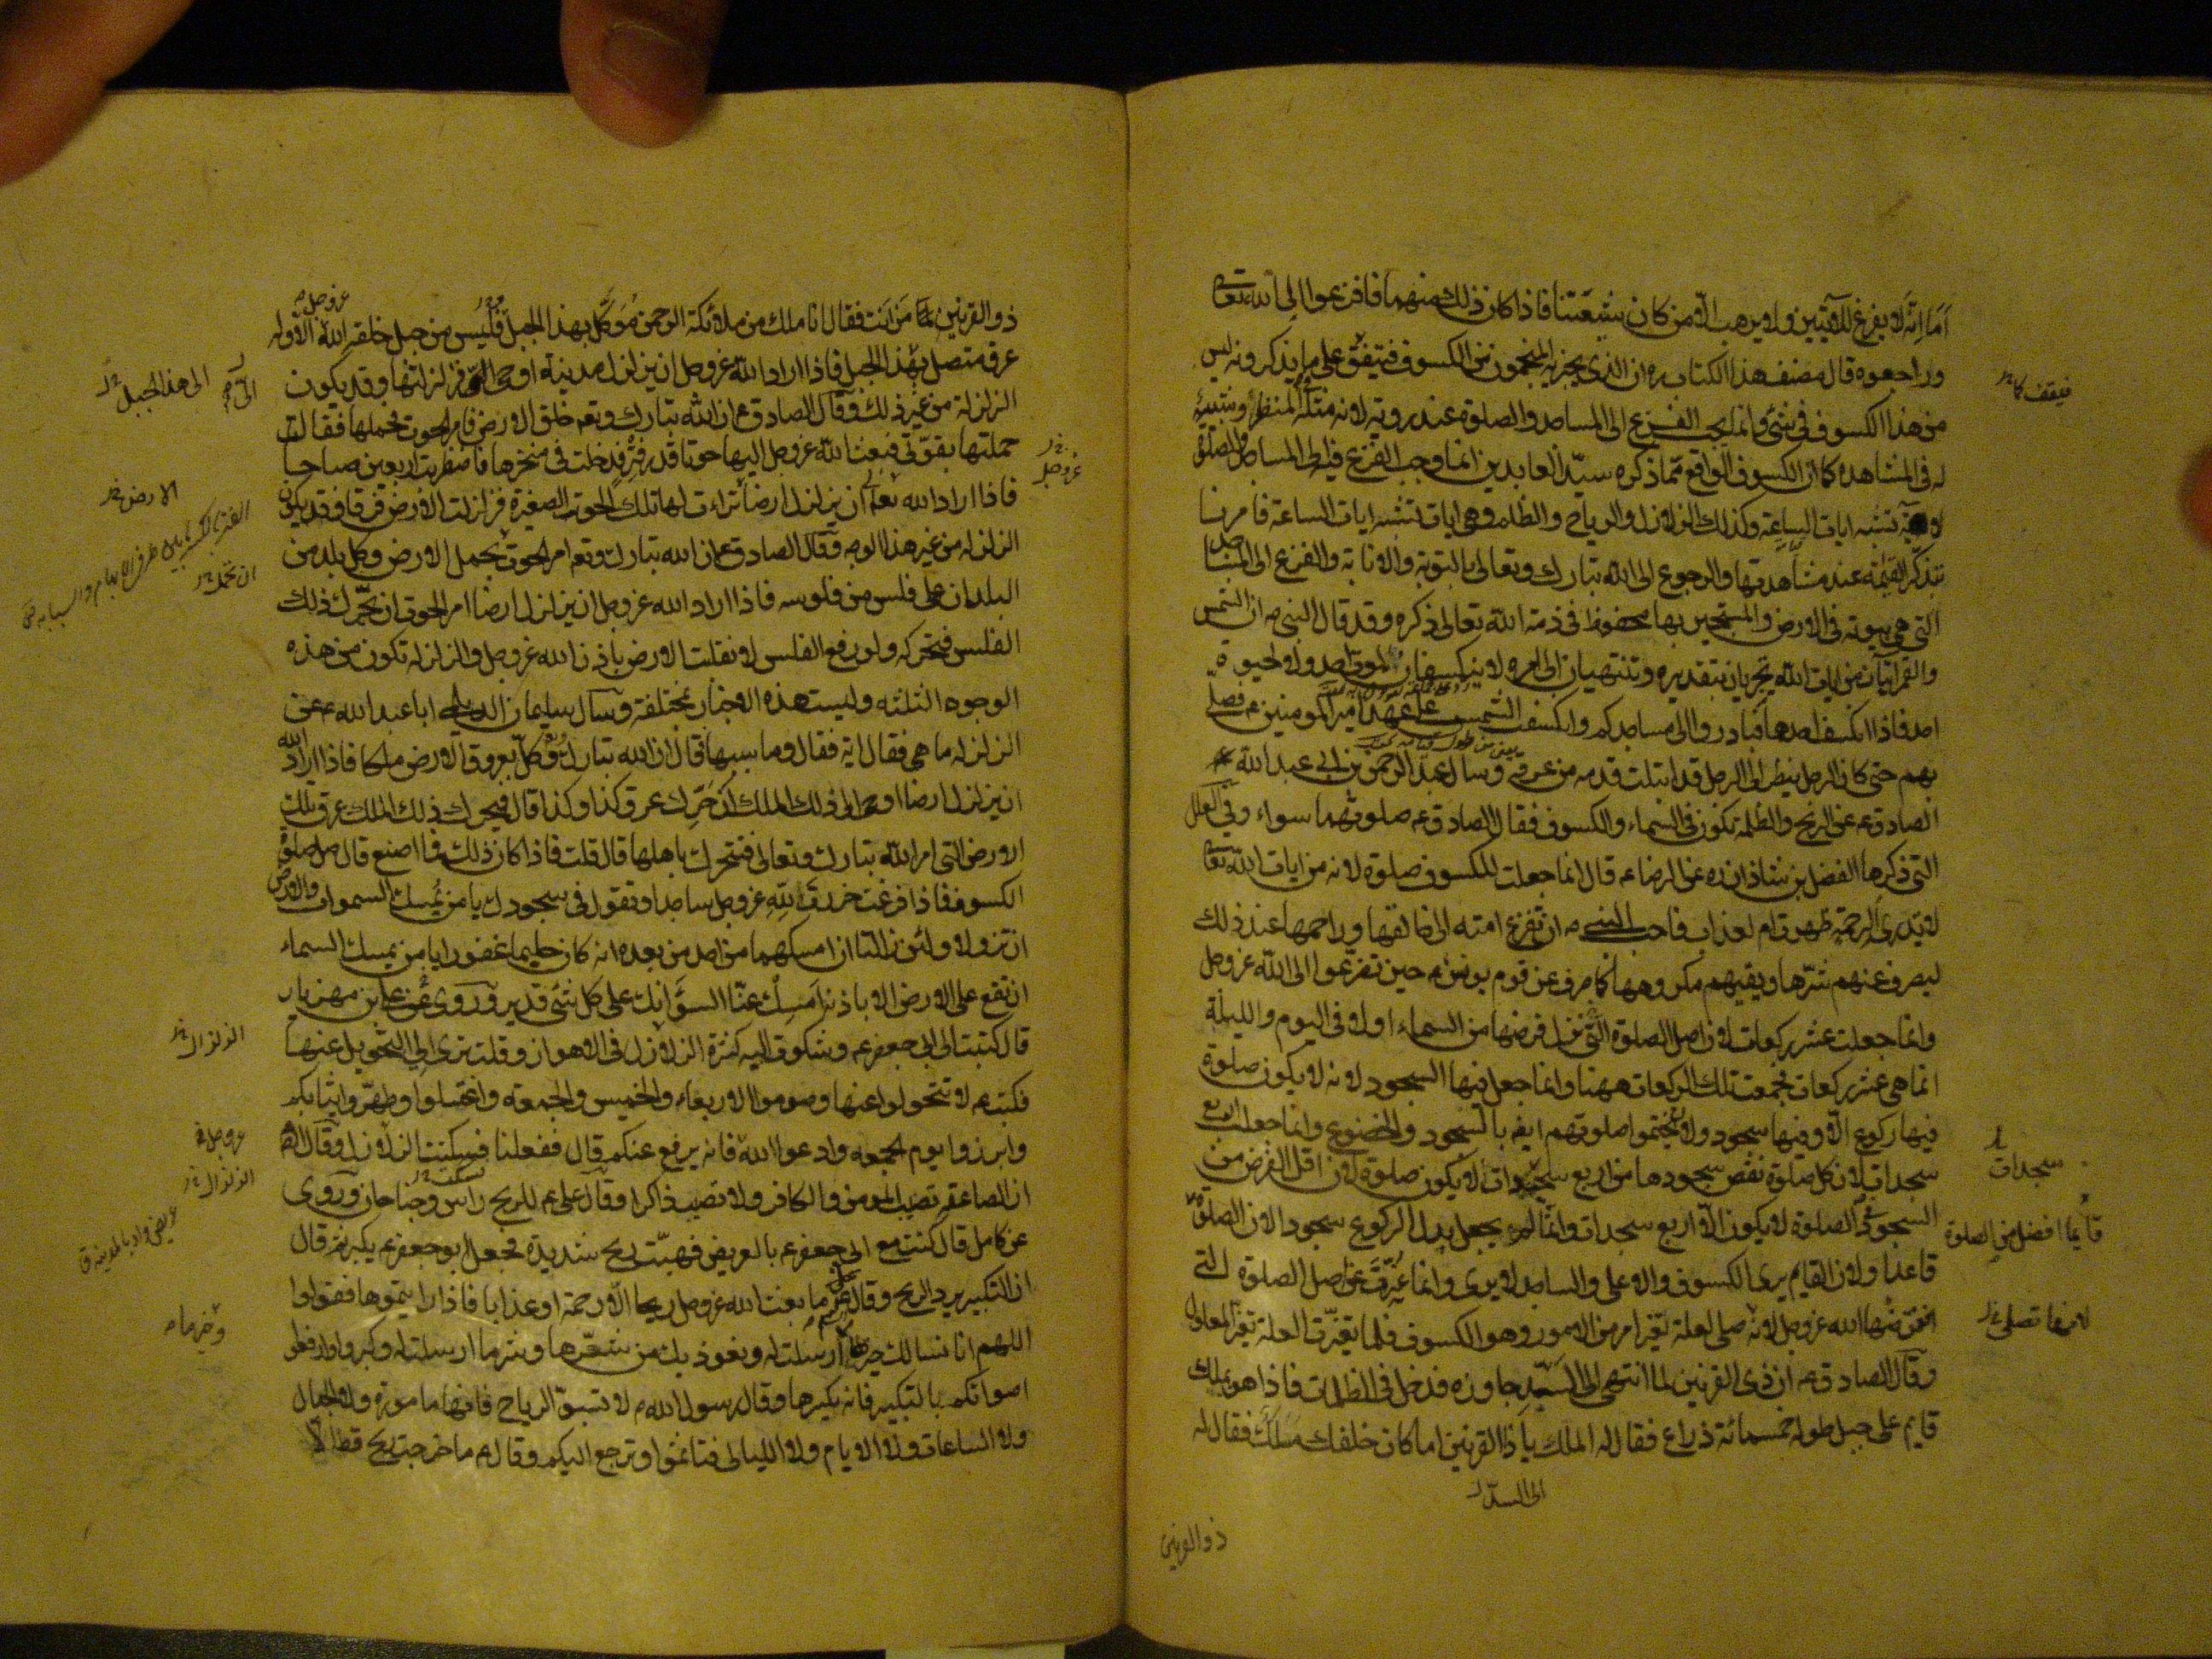 اما انه لا يفزع للآيتين ولا يرهب الا من كان شيعتنا فاذا كان ذلك منهما فافزعوا الى الله تعالى
وراجعوه قال مصنف هذا الكتاب ره ان الذي يخبر به المنجمون من الكسوف فيتفق على ما يذكرونه ليس
من هذا الكسوف في شئ وانما يجب الفزع الى المساجد والصلوة عند رويته لانه مثله في المنظر وشبيه
له في المشاهده كما ان الكسوف الواقع مما ذكره سيد العابدين انما وجب الفزع فيه الى المساجد والصلوة
لانه آية تشبه ايات الساعة وكذلك الزلازل والرياح والظلم وهي ايات تشبه ايات الساعة فامرنا
بتذكر القيمة عند مشاهدتها والرجوع الى الله تبارك وتعالى بالتوبة والانابة والفزع الى المساجد
التي هي بيوته في الارض والمستجير بها محفوظ في ذمة الله تعالى ذكره وقد قال النبي ص ان الشمس
والقمر آيتان من ايات الله تجريان بتقديره وتنتهيان الى امره لا ينكسفان لموت احد ولا لحيوة
احد فاذا انكسف احدهما فبادروا الى مساجدكم وانكسف الشمس على عهد امير المومنين ع فصلى
بهم حتى كان الرجل ينظر الى الرجل قد ابتلت قدمه من عرقه وسال عبد الرحمن بن ابي عبد الله
الصادق ع عن الريح والظلمة تكون في السماء والكسوف فقال الصادق ع صلوتهما سواء وفي العلل
التي ذكرها الفضل بن شاذان ره عن الرضا ع قال انما جعلت للكسوف صلوة لانه من ايات الله تعالى
لا يدرى الرحمة ظهرت ام لعذاب فاحب النبي ص ان تفزع امته الى خالقها وراحمها عند ذلك
ليصرف عنهم شرها ويقيهم مكروهها كما صرف عن قوم يونس ع حين تضرعوا الى الله عز وجل
وانما جعلت عشر ركعات لان اصل الصلوة التي نزل فرضها من السماء اولا في اليوم والليلة
انما هي عشر ركعات فجمعت تلك الركعات ههنا وانما جعل فيها السجود لانه لا يكون صلوة
فيها ركوع الا وفيها سجود ولان يختموا صلوتهم ايضا بالسجود والخضوع وانما جعلت اربع
سجدات لان كل صلوة نقص سجودها من اربع سجدات لا يكون صلوة لان اقل الفرض من
السجود في الصلوة لا يكون الا اربع سجدات وانما لم يجعل بدل الركوع سجود لان الصلوة
قاعدا ولان القايم يرى الكسوف والاعلى والساجد لا يرى وانما غيرت عن اصل الصلوة التي
افترضها الله عز وجل لانه صلى لعلة تغير امر من الامور وهو الكسوف فلما تغيرت العلة تغير المعلول
وقال الصادق ع ان ذي القرنين لما انتهى الى السد جاوزه فدخل في الظلمات فاذا هو بملك
قايم على جبل طوله خمسمائة ذراع فقال له الملك يا ذا القرنين اما كان خلفك مسلك فقال له
الى السد
ذو القرنين
سجدات
قايما افضل من الصلوة
ذو القرنين من انت فقال انا ملك من ملائكة الرحمن موكل بهذا الجبل فليس من جبل خلقه الله عز وجل الا وله
عرق متصل بهذا الجبل فاذا اراد الله عز وجل ان يزلزل مدينة اوحى الي فزلزلتها وقد يكون
الزلزلة من غير ذلك وقال الصادق ع ان الله تبارك وتع خلق الارض فامر الحوت فحملها فقالت
حملتها بقوتي فبعث الله عز وجل اليها حوتا قدر فتر فدخلت في منخرها فاضطربت اربعين صباحا
فاذا اراد الله تعالى ان يزلزل ارضا تراءت لها تلك الحوت الصغيرة فزلزلت الارض فرقا وقد يكون
الزلزله من غير هذا الوجه وقال الصادق ع ان الله تبارك وتع امر الحوت بحمل الارض وكل بلد من
البلدان على فلس من فلوسه فاذا اراد الله عز وجل ان يزلزل ارضا امر الحوت ان تحرك ذلك
الفلس فتحركه ولو رفع الفلس لانقلبت الارض باذن الله عز وجل والزلزله تكون من هذه
الوجوه الثلثه وليست هذه الاخبار بمختلفة وسال سليمان الديلمي ابا عبد الله ع عن
الزلزله ما هي فقال اية فقال وما سببها قال ان الله تبارك وكل بعروق الارض ملكا فاذا اراد الله
ان يزلزل ارضا اوحى الى ذلك الملك ان حرك عرق كذا وكذا قال فيحرك ذلك الملك عرق تلك
الارض التي امر الله تبارك وتعالى فتتحرك باهلها قال قلت فاذا كان ذلك فما اصنع قال صل صلوة
الكسوف فاذا فرغت خررت لله عز وجل ساجدا وتقول في سجودك يا من يمسك السموات والارض
ان تزولا ولئن زالتا ان امسكهما من احد من بعده انه كان حليما غفورا يا من يمسك السماء
ان تقع على الارض الا باذنه امسك عنا السؤ انك على كل شئ قدير وروى عن علي بن مهزيار
قال كتبت الى ابي جعفر ع وشكوت اليه كثرة الزلازل في الاهواز وقلت ترى لي التحويل عنها
فكتب ع لا تتحولوا عنها وصوموا الاربعاء والخميس والجمعة واغتسلوا وطهروا ثيابكم
وابرزوا يوم الجمعه وادعوا الله فانه يرفع عنكم قال ففعلنا فسكنت الزلازل وقال الصادق ع
ان الصاعقة تصيب المومن والكافر ولا تصيب ذاكرا وقال علي ع للريح راس وجناحان وروى
عن كامل قال كنت مع ابي جعفر ع بالعريض فهبت ريح شديدة فجعل ابو جعفر ع يكبر ثم قال
ان التكبير يرد الريح وقال ع ما بعث الله عز وجل ريحا الا رحمة او عذابا فاذا رايتموها فقولوا
اللهم انا نسالك خير ما ارسلت له ونعوذ بك من شرها وشر ما ارسلت له وكبروا وارفعوا
اصواتكم بالتكبير فانه يكسرها وقال رسول الله ص لا تسبوا الرياح فانها مامورة ولا الجبال
ولا الساعات ولا الايام ولا الليالي فتاثموا وترجع اليكم وقال ع ما خرجت ريح قط الا
الى هذا الجبل
الارض
الزلازل
عز وجل
الزلازل
وخير ما